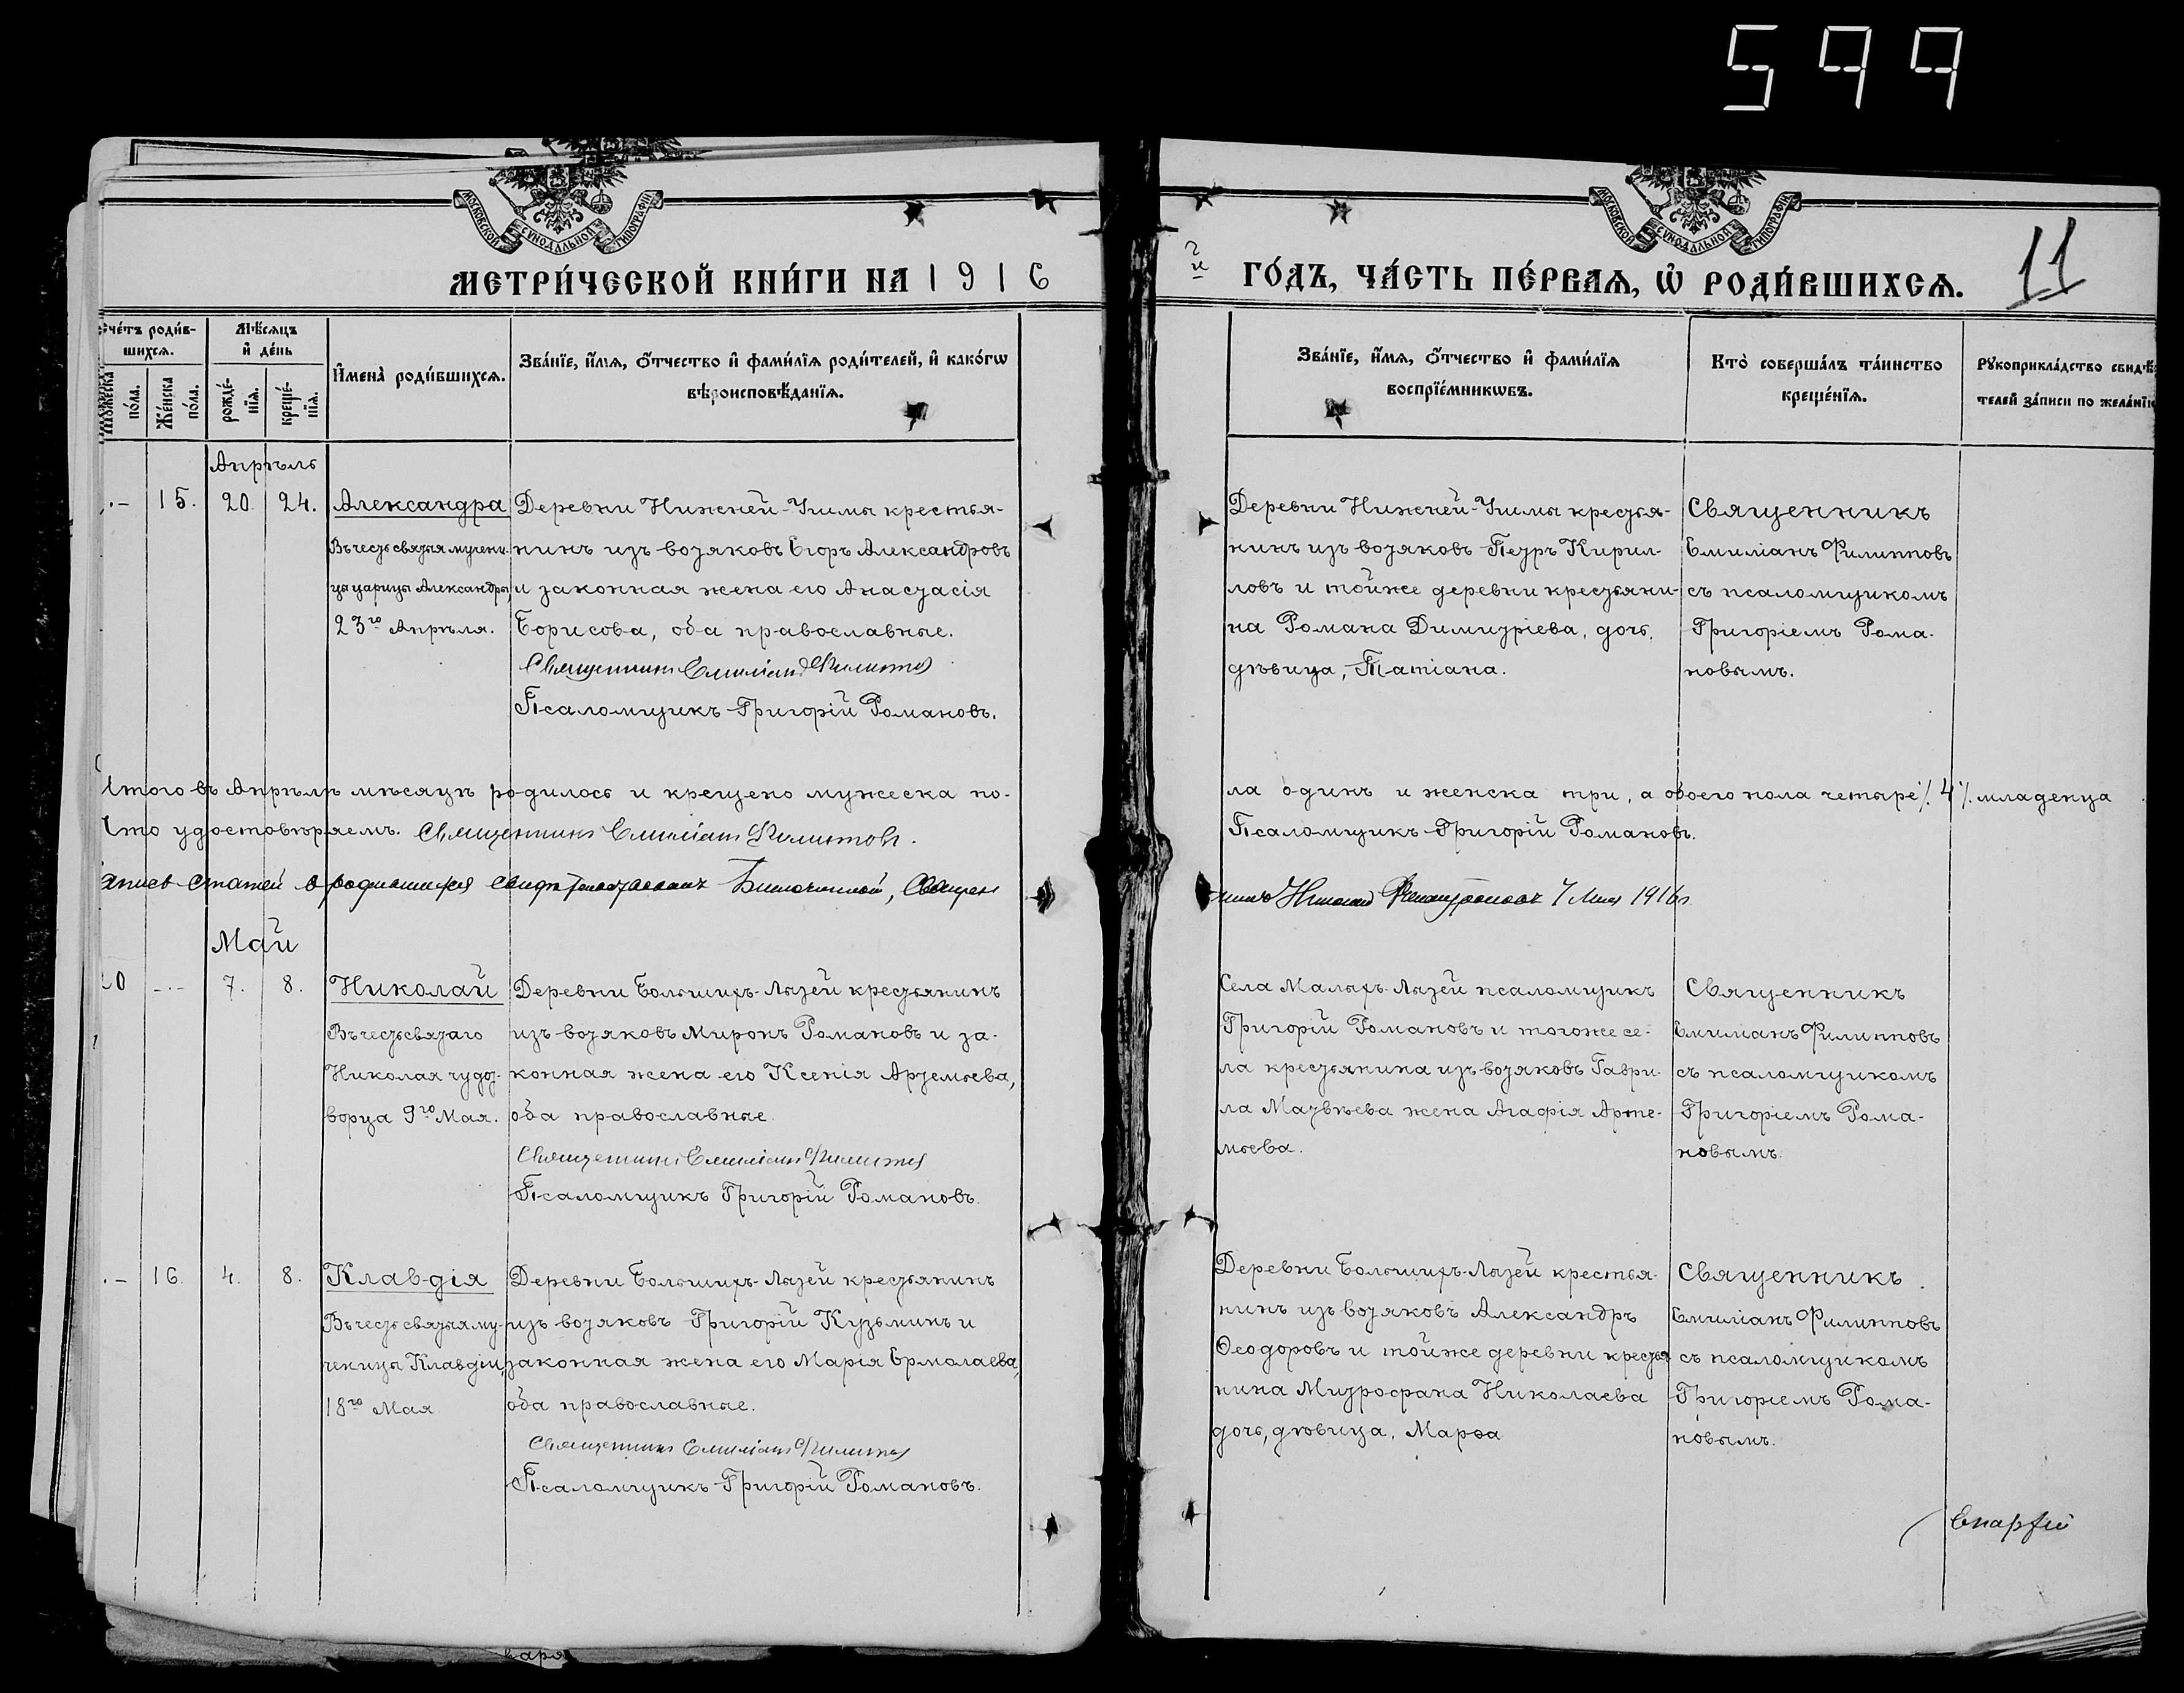 599
МОСКОВСКОЙ СѴНОДАЛЬНОЙ ТИПОГРАФІИ
МОСКОВСКОЙ СѴНОДАЛЬНОЙ ТИПОГРАФІИ
МЕТРИ́ЧЕСКОЙ КНИ́ГИ НА 1916 й ГО́ДЪ, ЧА́СТЬ ПЕ́РВАѦ, Ѡ҆ РОДИ́ВШИХСѦ. 11
счéтъ роди́в-
шихсѧ.
Мѣ́сѧцъ
и҆ де́нь
И҆мена̀ роди́вшихсѧ.
Зва́нїе, и҆́мѧ, ѻ҆́тчество и҆ фами́лїѧ роди́телей, и҆ како́гѡ
вѣроисповѣ́данїѧ.
Мужеска
по́ла.
Же́нска
по́ла.
рожде́-
нїѧ.
креще́-
нїѧ.
Зва́нїе, и҆́мѧ, ѻ҆́тчество и҆ фами́лїѧ
воспрїе́мникѡвъ.
Кто̀ соверша́лъ та́инство
креще́нїѧ.
Рꙋкоприкла́дство свидѣ́-
телей за́писи по жела́нїю
Апрѣль
15. 20. 24. Александра
Въ честь святыя мучени-
цы царицы Александры,
23го Апрѣля.
Деревни Нижней-Учмы крестья-
нинъ изъ вотяковъ Егоръ Александровъ
и законная жена его Анастасія
Борисова, оба православные.
Священникъ Емиліанъ Филиппов
Псаломщикъ Григорій Романовъ.
Деревни Нижней-Учмы крестья-
нинъ изъ вотяковъ Петръ Кирил-
ловъ и тойже деревни крестьяни-
на Романа Димитріева, дочь,
дѣвица, Татіана.
Священникъ
Емиліанъ Филипповъ
съ псаломщикомъ
Григоріемъ Рома-
новымъ.
Итого въ Апрѣлѣ мѣсяцѣ родилось и крещено мужеска по-
ла одинъ и женска три, а обоего пола четыре ⁒ 4 ⁒ младенца
Что удостовѣряемъ. Священникъ Емиліанъ Филипповъ.
Псаломщикъ Григорій Романовъ.
статей о родившихся Благочинный, Священ
никъ Николай 7 Мая 1916г.
Май
20 7. 8. Николай
Въ честь святаго
Николая чудот-
ворца 9го Мая.
Деревни Большихъ-Лызей крестьянинъ
изъ вотяковъ Миронъ Романовъ и за-
конная жена его Ксенія Артемьева,
оба православные.
Священникъ Емиліанъ Филиппов
Псаломщикъ Григорій Романовъ.
Села Малыхъ-Лызей псаломщикъ
Григорій Романовъ и тогоже се-
ла крестьянина изъ вотяковъ Гаври-
ла Матвѣева жена Агафія Арте-
мьева.
Священникъ
Емиліанъ Филипповъ
съ псаломщикомъ
Григоріемъ Рома-
новымъ.
16. 4. 8. Клавдія
Въ честь святыя му-
ченицы Клавдіи,
18го Мая.
Деревни Большихъ-Лызей крестьянинъ
изъ вотяковъ Григорій Кузьминъ и
законная жена его Марія Ермолаева,
оба православные.
Священникъ Емиліанъ Филиппов
Псаломщикъ Григорій Романовъ.
Деревни Большихъ-Лызей крестья-
нинъ изъ вотяковъ Александръ
Ѳеодоровъ и тойже деревни крестья
нина Митрофана Николаева
дочь, дѣвица, Марѳа
Священникъ
Емиліанъ Филипповъ
съ псаломщикомъ
Григоріемъ Рома-
новымъ.